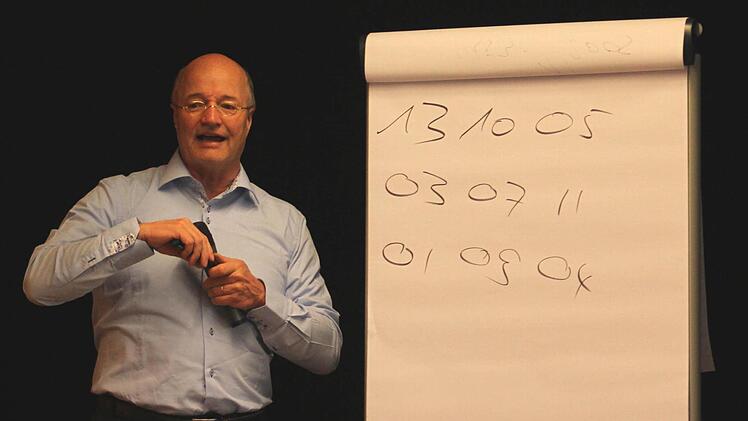 13 10 05
03 07 11
01 09 04